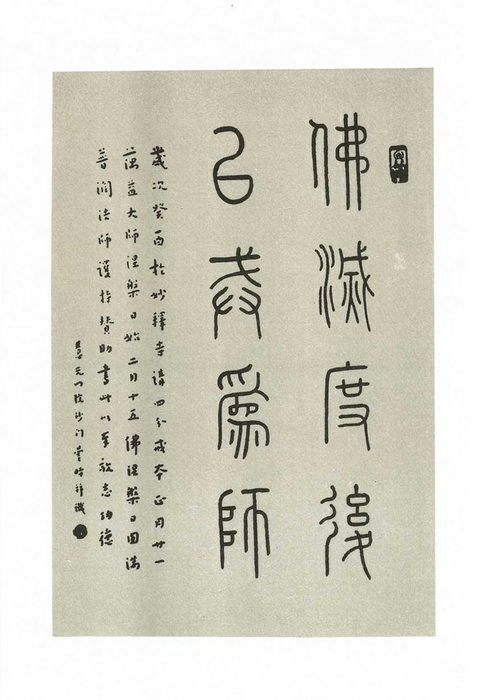 佛滅度後
以戒為師
歲次癸酉於妙釋寺講四分戒本正月廿一
蕅益大師涅槃日始二月十五佛涅槃日圓滿
普潤法師護持贊助書此以奉志德
沙門曇昉并識